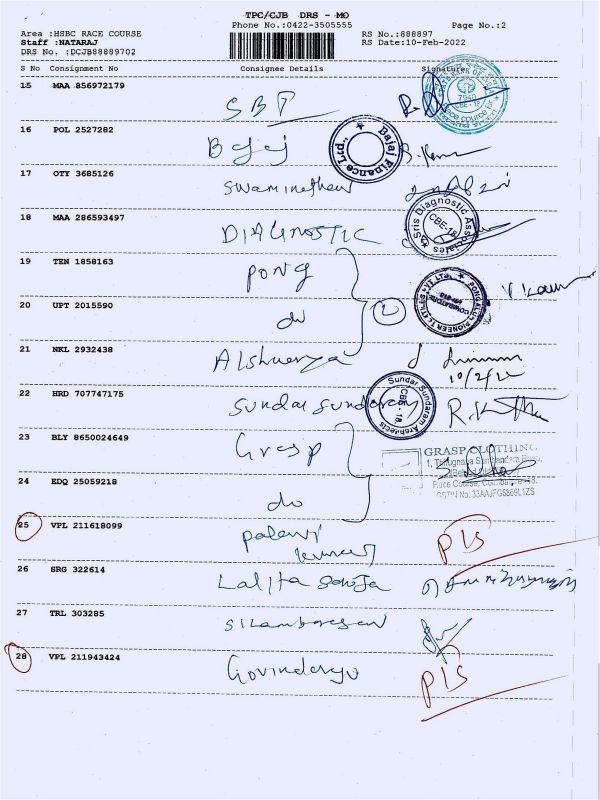 TPC/CJB DRS - MO
Phone No.:0422-3505555
Page No.:2
Area :HSBC RACE COURSE
Staff :NATARAJ
DRS No. :DCJB88889702
RS No.:888897
RS Date:10-Feb-2022
S No Consignment No Consignee Details Signature
15 MAA 856972179 SBI
16 POL 2527282 Bajaj
Bajaj Finance Ltd.,
17 OTY 3685126 Swaminathan
18 MAA 286593497 DIAGNOSTIC
Sris Diagnostic Associates
CBE-18
19 TEN 1858163 pong
20 UPT 2015590 do 2
21 NKL 2932438 Aishwarya
10/2/22
22 HRD 707747175 Sundar Sundaram
Sundar Sundaram Architects
CBE - 18
23 BLY 8650024649 Grasp
GRASP CLOTHING
Race Course, Coimbatore-18.
GSTIN No: 33AAJFG6869L1ZS
24 EDQ 25059218 do
25 VPL 211618099 palani kumar PLS
26 SRG 322614 Lalita
27 TRL 303285 Silambarasan
28 VPL 211943424 Govindaraju PLS